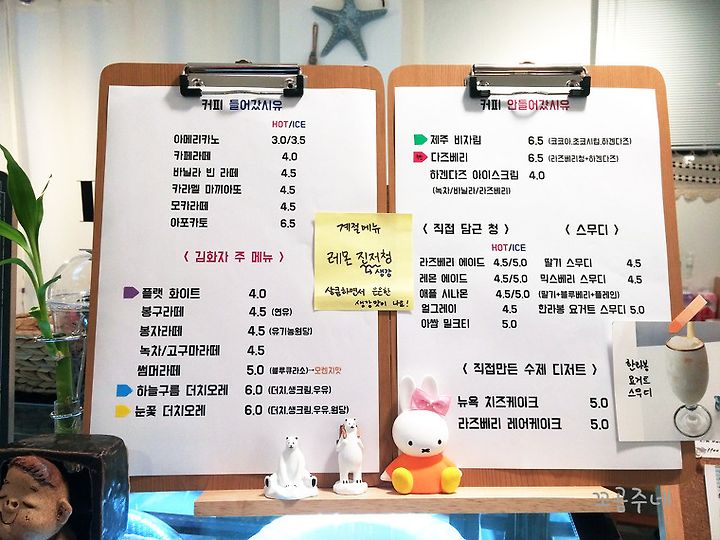 커피 들어갔시유
HOT/ICE
아메리카노 3.0/3.5
카페라떼 4.0
바닐라 빈 라떼 4.5
카라멜 마끼아또 4.5
모카라떼 4.5
아포카토 6.5
< 김화자 주 메뉴 >
플랫 화이트 4.0
봉구라떼 4.5 (연유)
봉자라떼 4.5 (유기농원당)
녹차/고구마라떼 4.5
썸머라떼 5.0 (블루큐라소)→오렌지맛
하늘구름 더치오레 6.0 (더치,생크림,우유)
눈꽃 더치오레 6.0 (더치,생크림,우유,원당)
계절메뉴
레몬 진저청
생강
상큼하면서 은은한
생강맛이 나요!
커피 안들어갔시유
제주 비자림 6.5 (코코아,초코시럽,하겐다즈)
다즈베리 6.5 (라즈베리청+하겐다즈)
하겐다즈 아이스크림 4.0
(녹차/바닐라/라즈베리)
< 직접 담근 청 >
HOT/ICE
라즈베리 에이드 4.5/5.0
레몬 에이드 4.5/5.0
애플 시나몬 4.5/5.0
얼그레이 4.5
아쌈 밀크티 5.0
< 스무디 >
딸기 스무디 4.5
믹스베리 스무디 4.5
(딸기+블루베리+플레인)
한라봉 요거트 스무디 5.0
< 직접만든 수제 디저트 >
뉴욕 치즈케이크 5.0
라즈베리 레어케이크 5.0
한라봉
요거트
스무디